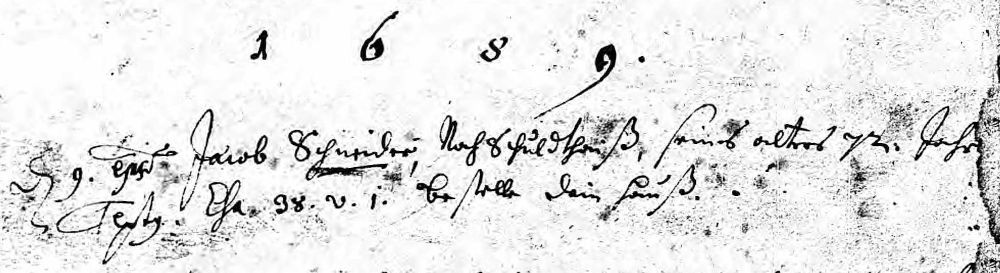 1689.
9. Jacob Schneider, Noch Schuldtheuß, seines alters 72. Jahr
Esa. 38. v. 1. bestelle dein Hauß.